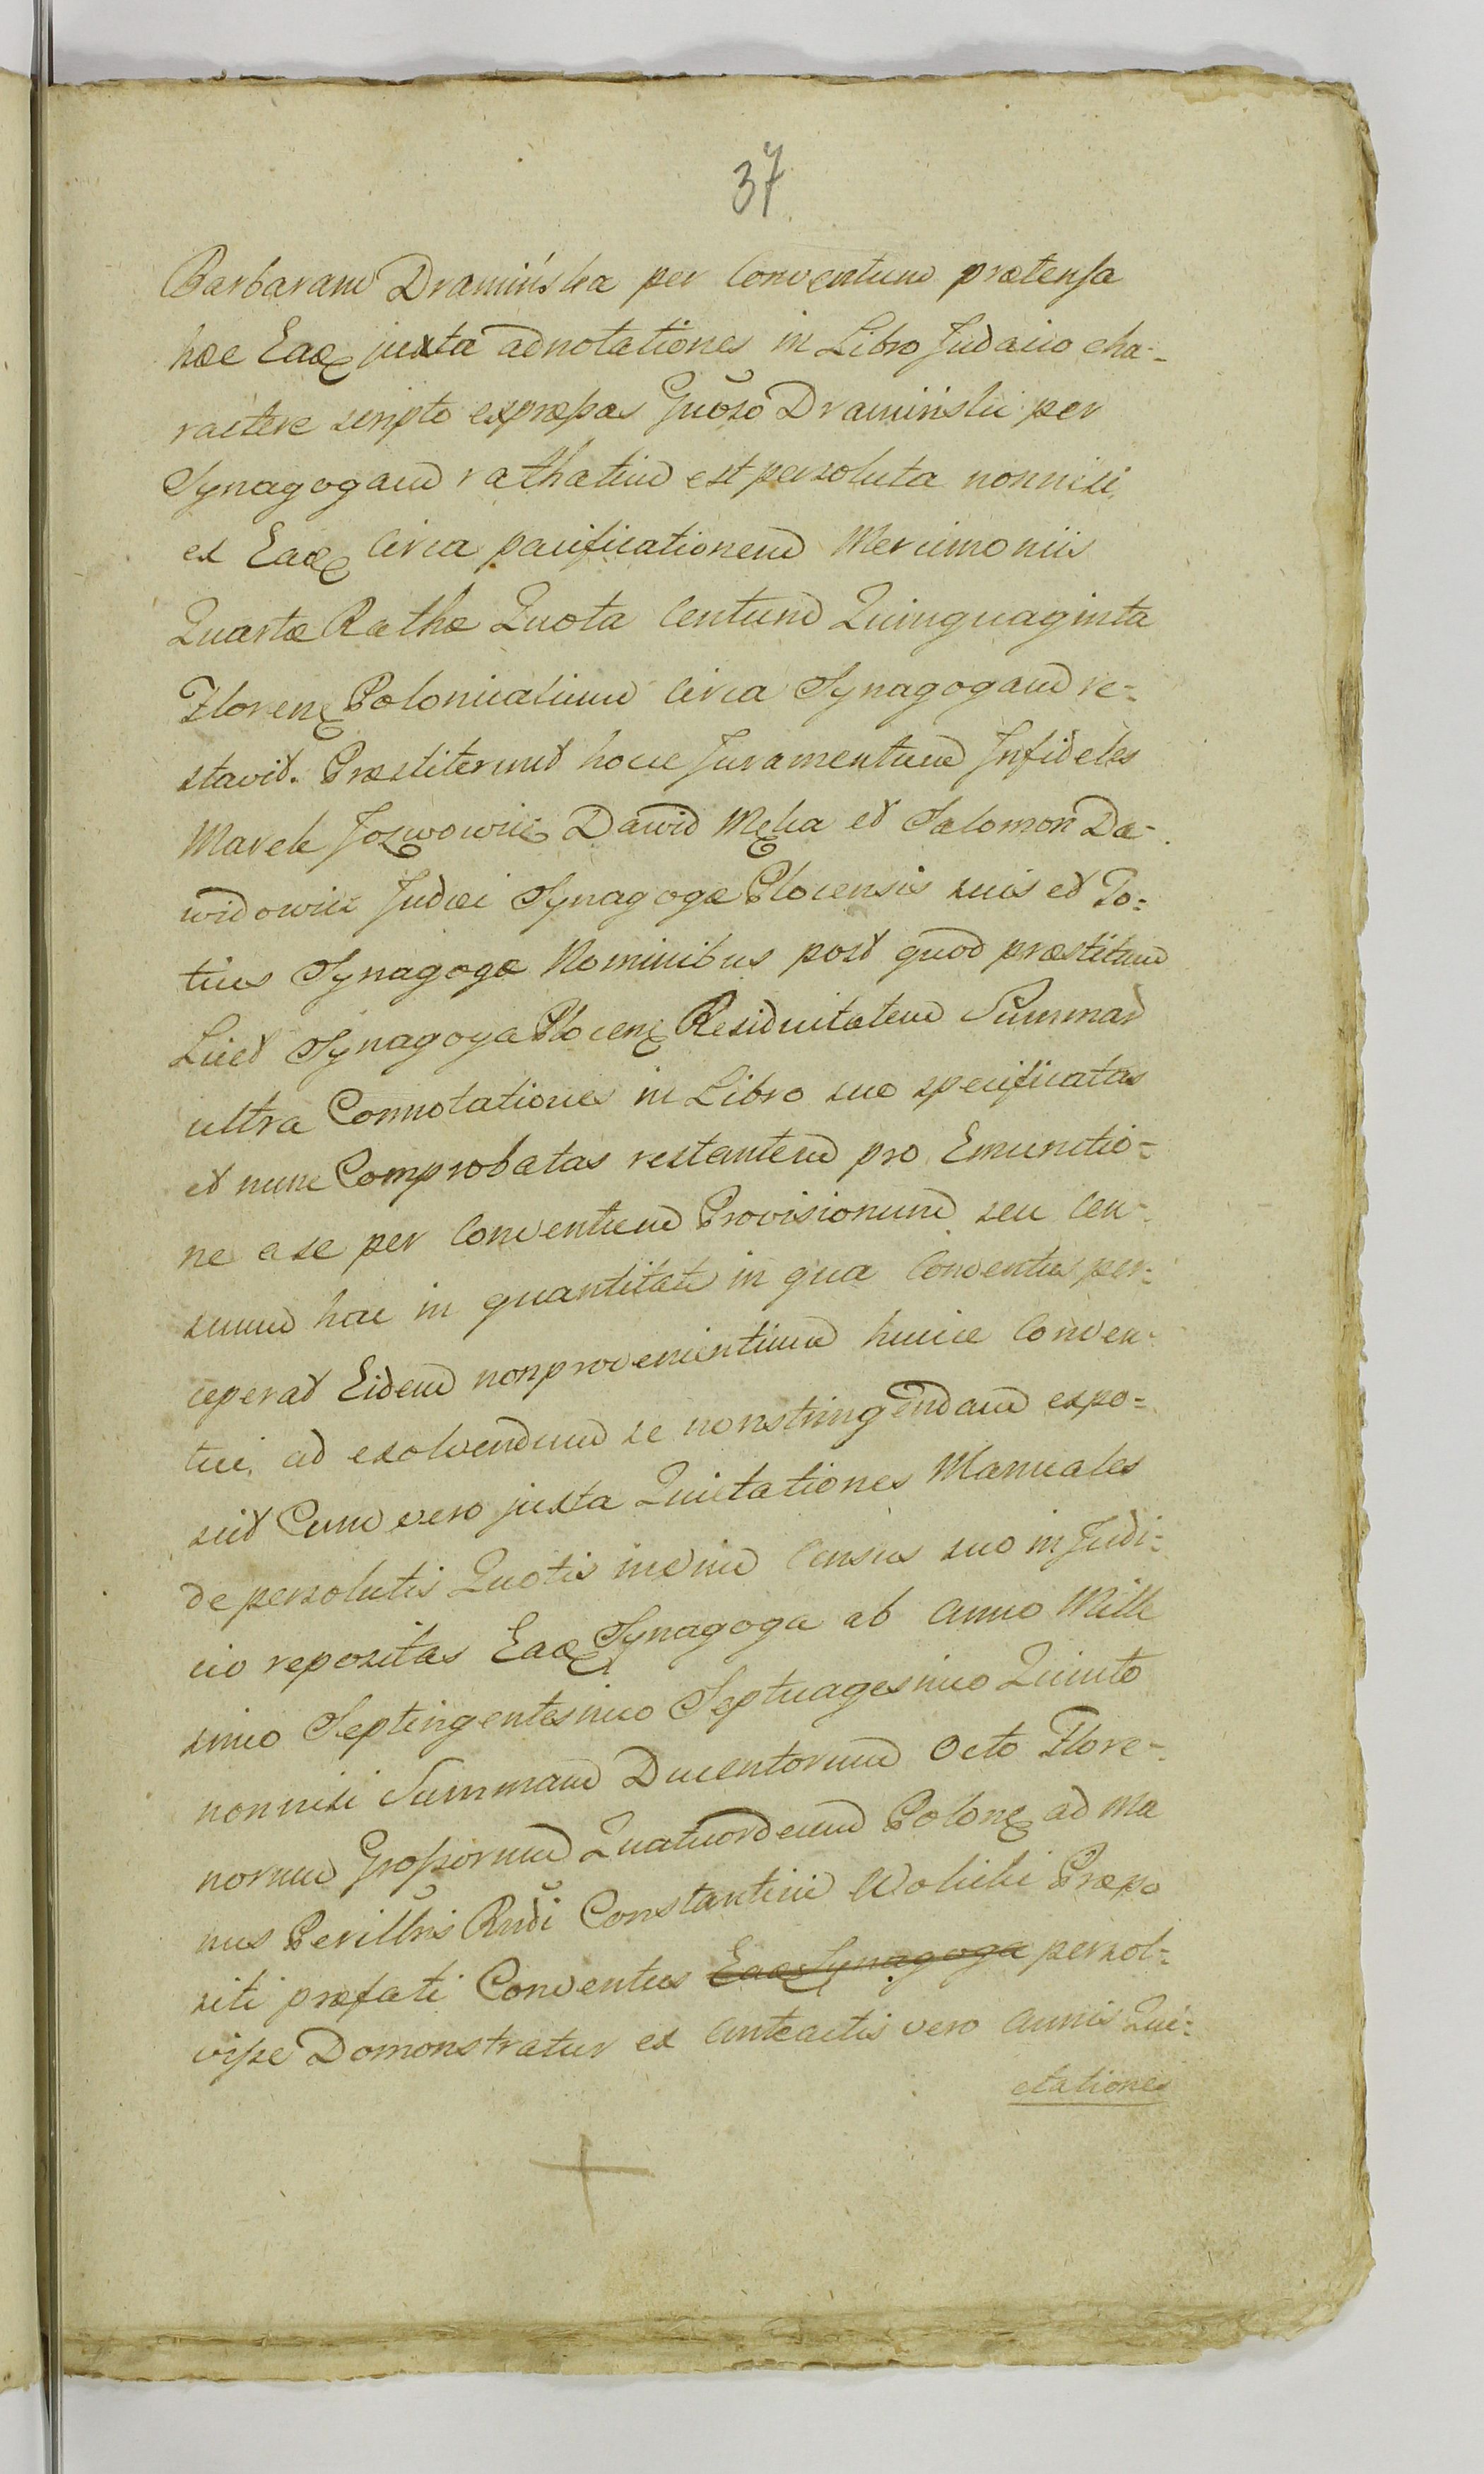 37
Barbaram Dramińska per Conventum prætensa
hæc Eaq juxta adnotationes in Libro Judaico cha-
ractere scripto expræssas Gnoso Dramiński per
Synagogam rathatim est persoluta nonnisi
ex Eaq Circa pacificationem Mercimoniis
Quartæ Rathæ Quota Centum Quinquaginta
Floren Polonicalium Circa Synagogam re-
stavit. Præstiterunt hocce Juramentum Infideles
Marek Jozwowicz Dawid Męka et Salomon Da-
widowicz Judæi Synagogæ Plocensis suis et To-
tius Synagogæ Nominibus post quod præstitum
Licet Synagoga Plocen Residuitatem Summar
ultra Connotationes in Libro suo specificatas
et nunc Comprobatas restantem pro Emunctio-
ne a se per Conventum Provisionum seu Cen-
suum hac in quantitate in qua Conventus per-
ceperat Eidem nonprovenientium huicce Conven-
tui ad exolvendum se nonstringendam expo-
suit Cum vero juxta Quietationes Manuales
de persolutis Quotis Censius suo in Judi-
cio repositas Eaq Synagoga ab Anno Mille
simo Septingentesimo Septuagesimo Quinto
nonnisi Summam Ducentorum Octo Flore-
norum Grossorum Quatuordecim Polon ad Ma
nus Perillris Rndi Constantini Wolicki Præpo
siti præfati Conventus Eaq Synagoga persol-
visse Domonstratur ex Anteactis vero Annis Qui-
etationes